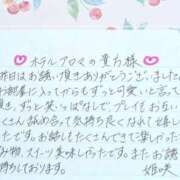 ホテルアロマの貴方様
昨日はお誘い頂きありがとうございました
お部屋に入ってからもずっと可愛いと言って
頂き、ずっと笑いっぱなしで、プレイもお互い
くさん舐め合って気持ち良くなれて嬉し
たです。お話しもたくさんできて楽しかった
み物、スイーツ美味しかったです。またお
待ちしております。
姫咲